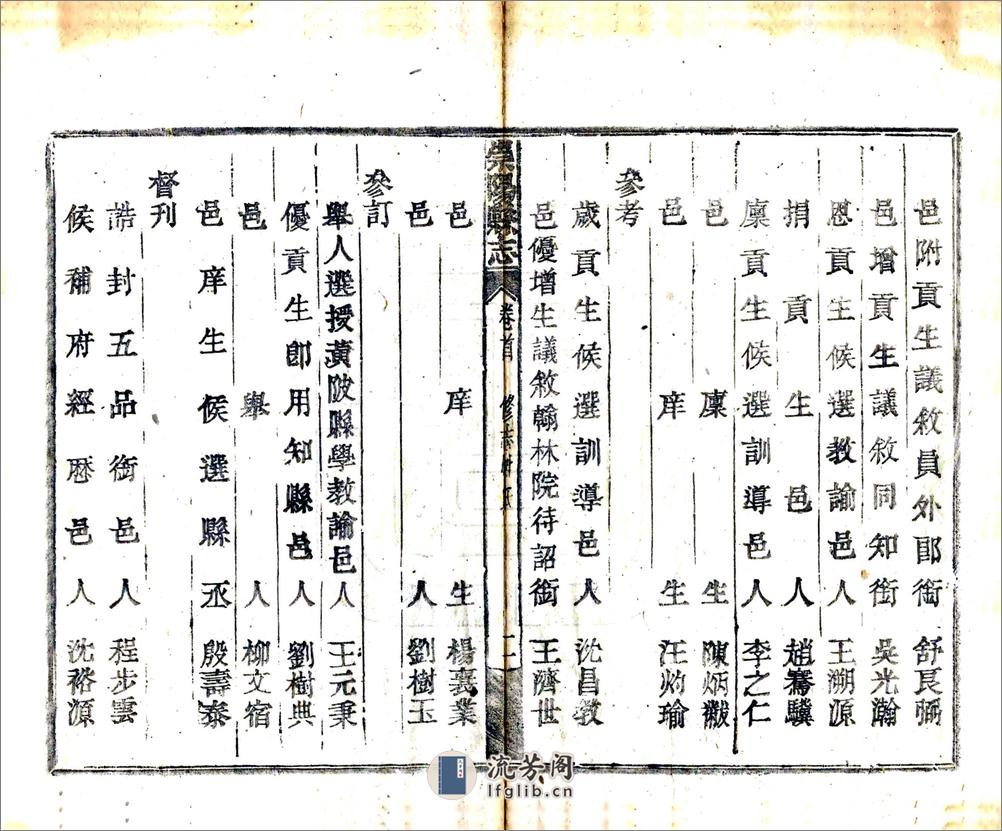 邑附貢生議敘員外郎銜舒良弼
邑增貢生議敘同知銜吳光瀚
恩貢生候選教諭邑人王溯源
捐貢生邑人趙騫驥
廩貢生候選訓導邑人李之仁
邑廩生陳炳黻
邑庠生汪灼瑜
參考
歲貢生候選訓導邑人沈昌教
邑優增生議敘翰林院待詔銜王濟世
崇陽縣志
卷首 修志姓氏
二
邑庠生楊襄業
邑人劉樹玉
參訂
舉人選授黃陂縣學教諭邑人王元秉
優貢生即用知縣邑人劉樹典
邑舉人柳文宿
邑庠生候選縣丞殷壽泰
督刊
誥封五品銜邑人程步雲
候補府經歷邑人沈裕源
流芳阁
lfglib.cn